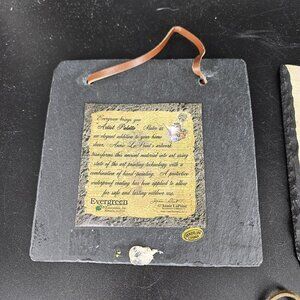 Evergreen brings you
Artist Palette Slate as
an elegant addition to your home
decor. Annie La Point's artwork
transforms this ancient material into art using
state of the art printing technology with a
combination of hand-painting. A protective
waterproof coating has been applied to allow
for safe and lasting outdoor use.
Evergreen
© Annie LaPoint